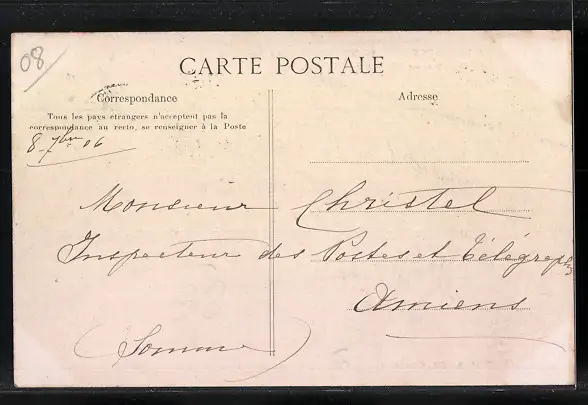 08
CARTE POSTALE
Correspondance
Adresse
Tous les pays étrangers n'acceptent pas la
correspondance au recto, se renseigner à la Poste
8 - 7bre 06
Monsieur Christel
Inspecteur des Postes et Télégraphes
Amiens
(Somme)